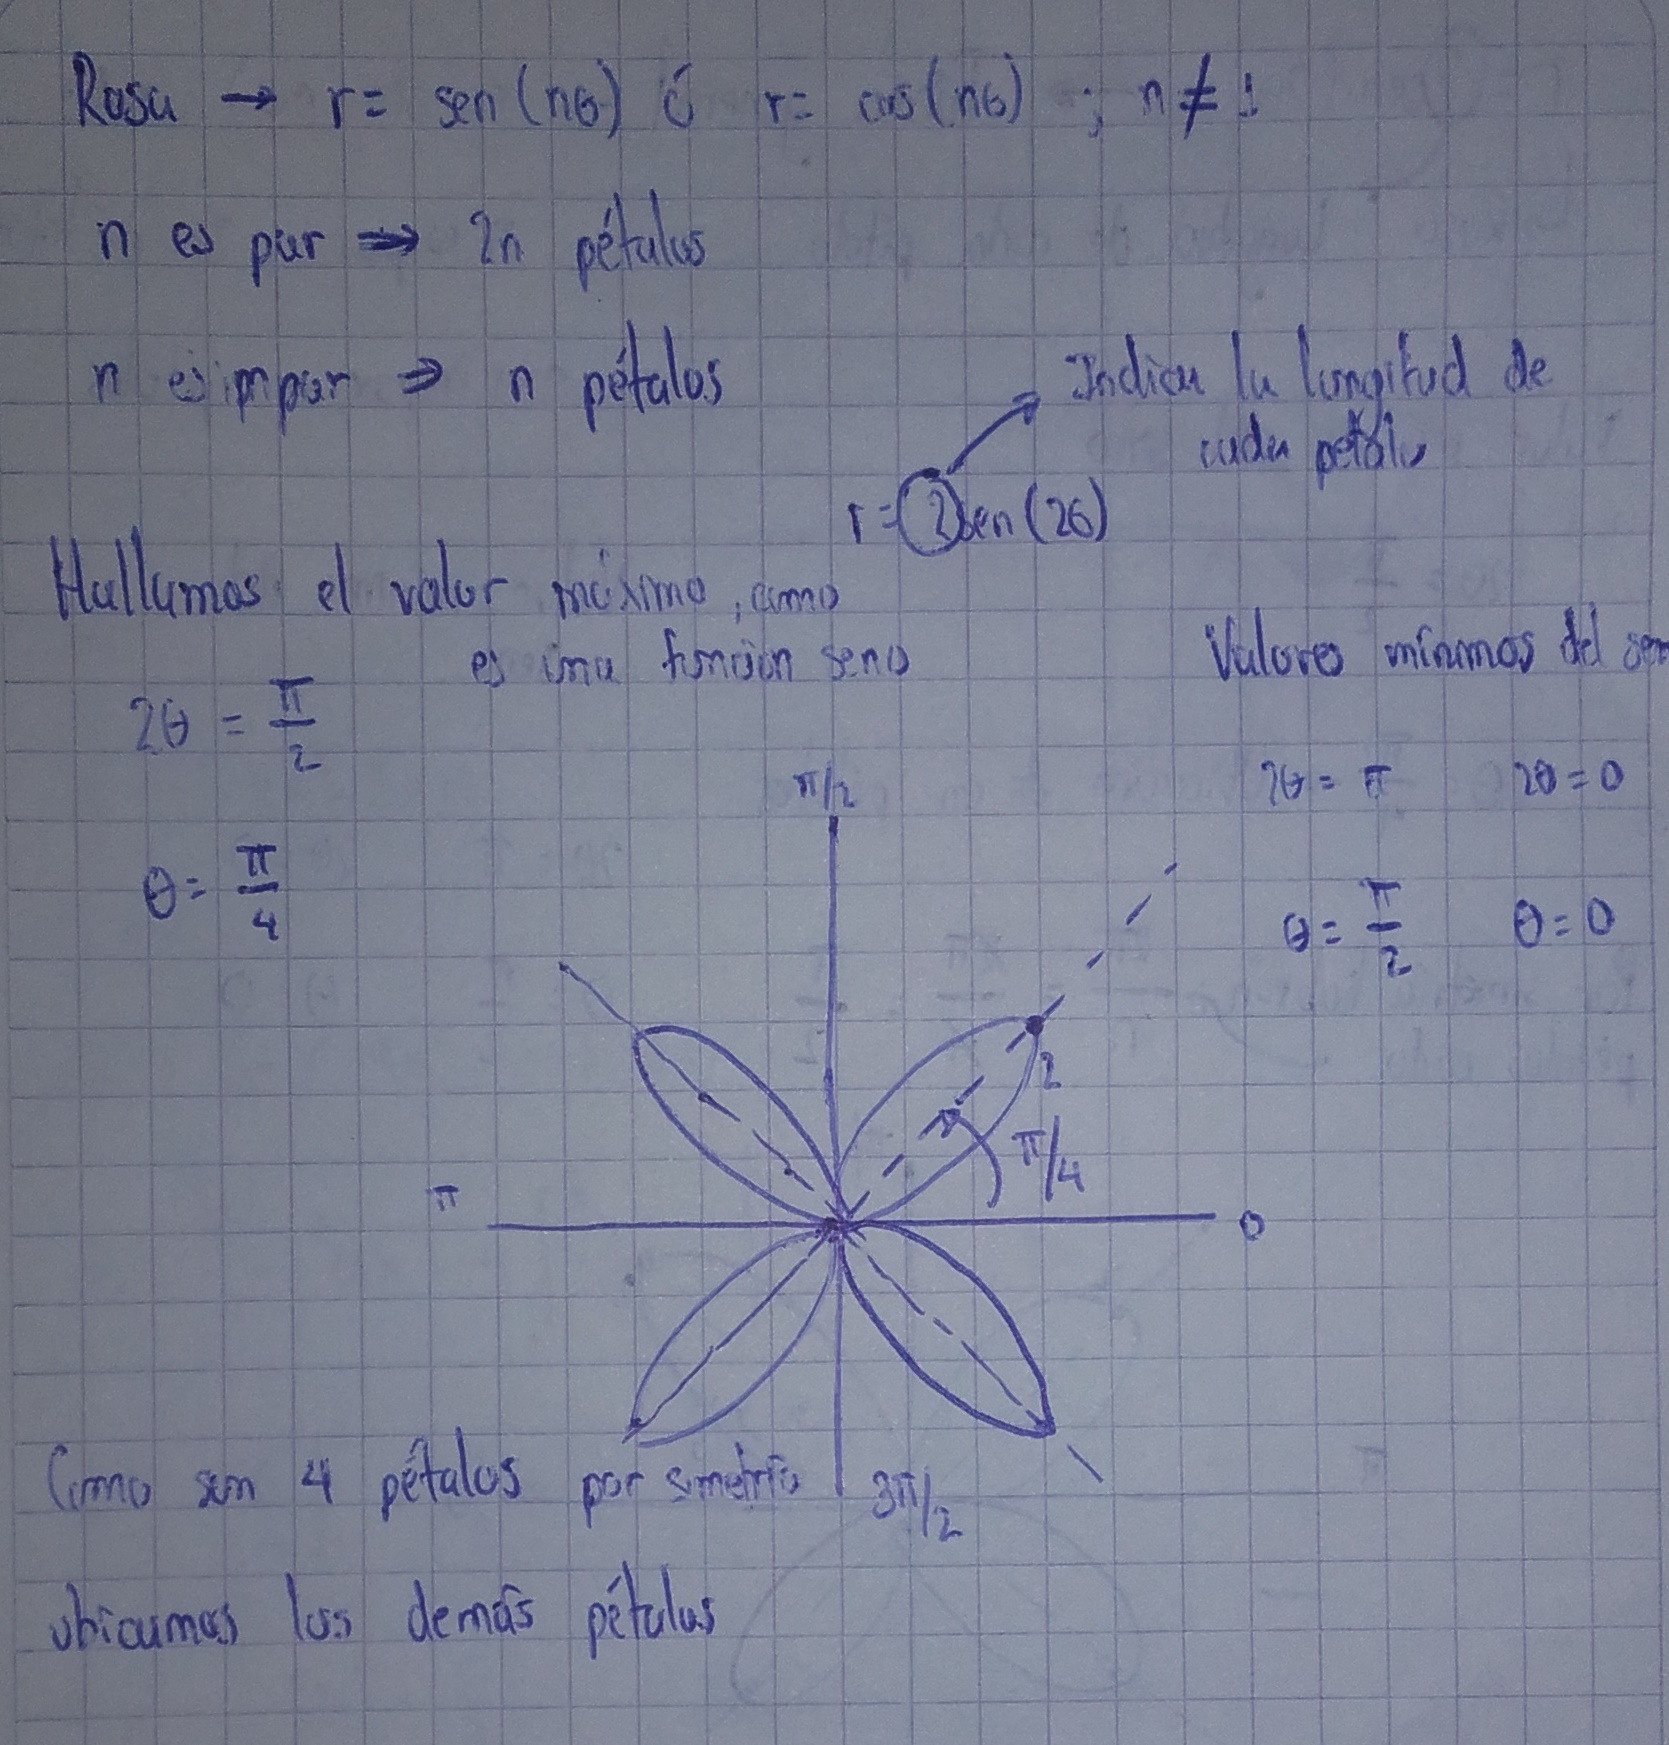 Rosa → r = sen(nθ) ó r = cos(nθ) ; n ≠ 1
n es par ⇒ 2n pétalos
n es impar ⇒ n pétalos
Indica la longitud de
cada pétalo
r = 2sen(2θ)
Hallamos el valor máximo, como
es una función seno
Valores mínimos del sen
2θ = π/2
2θ = π 2θ = 0
π/2
θ = π/4
θ = π/2 θ = 0
2
π/4
π
0
Como son 4 pétalos por simetría
3π/2
ubicamos los demás pétalos